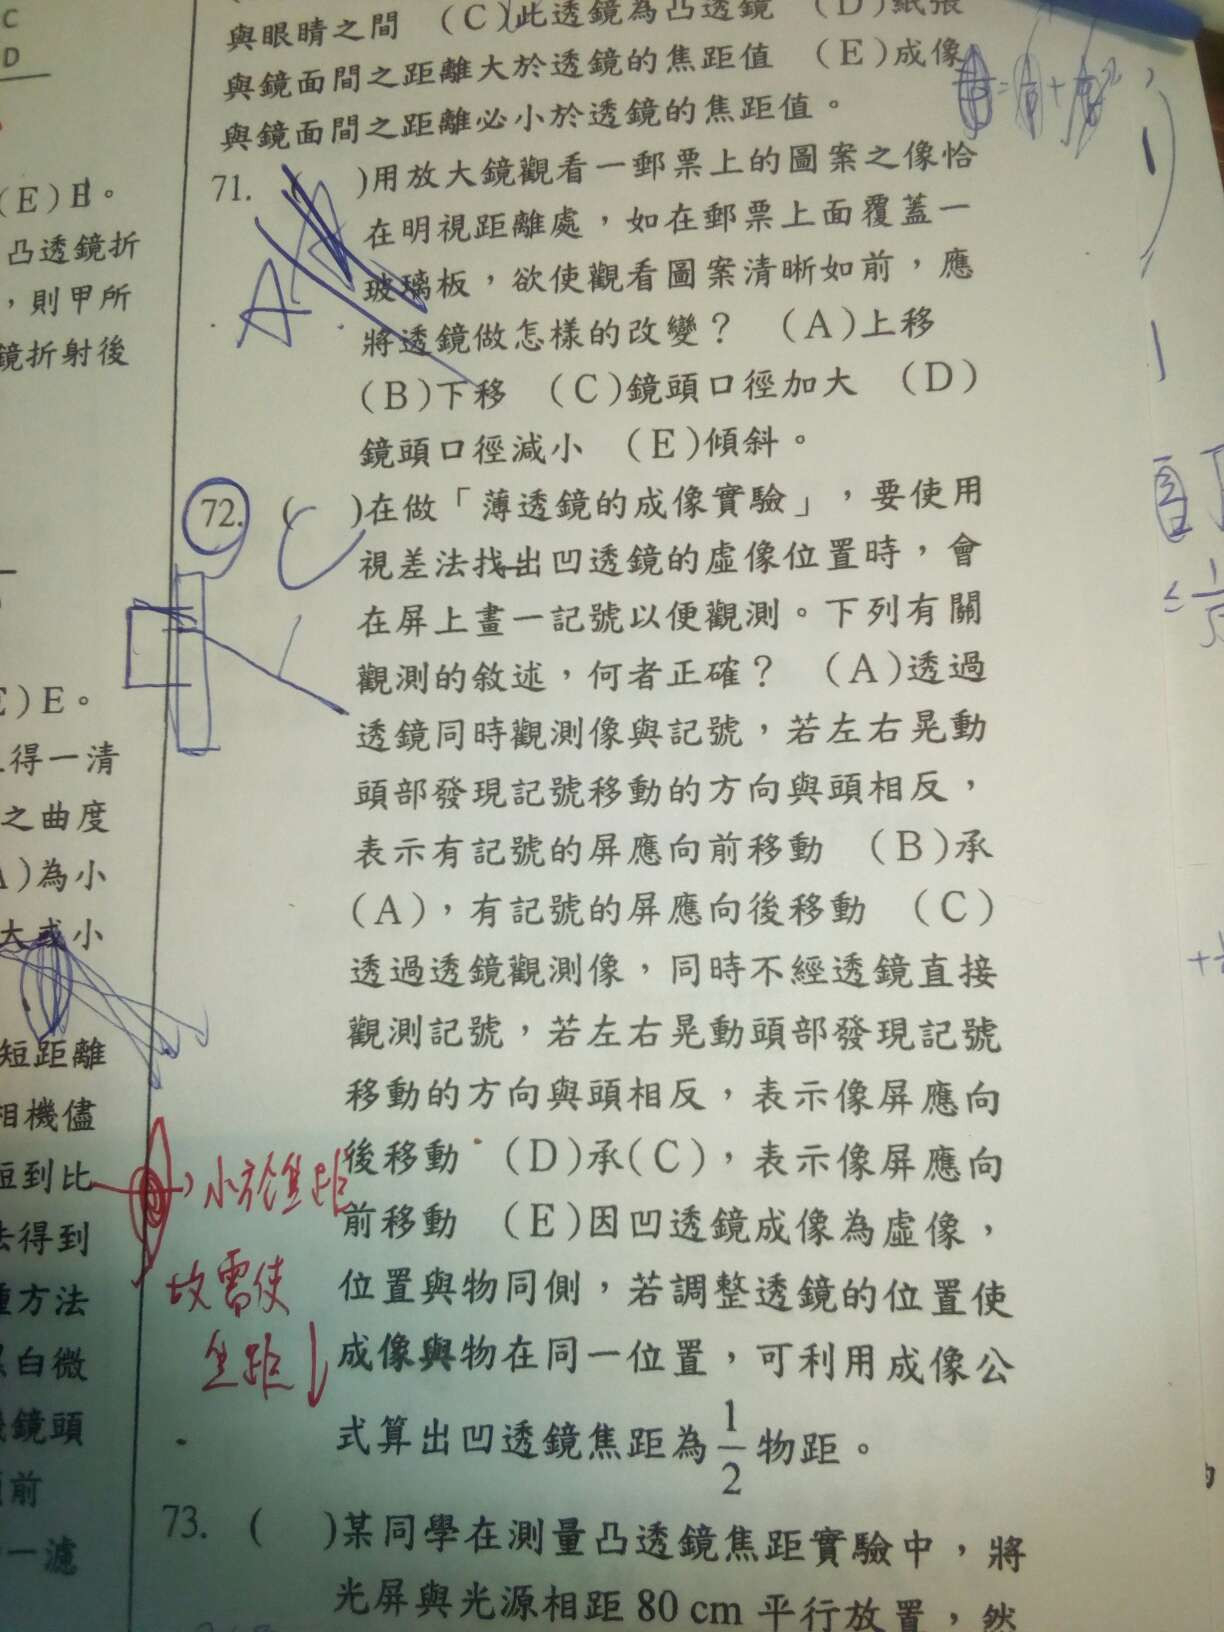 C
D
(E)E。
凸透鏡折
,則甲所
鏡折射後
E)E。
得一清
之曲度
A)為小
大或小
短距離
相機儘
短到比
法得到
種方法
黑白微
機鏡頭
前
一濾
與眼睛之間 (C)此透鏡為凸透鏡 (D)紙張
與鏡面間之距離大於透鏡的焦距值 (E)成像
與鏡面間之距離必小於透鏡的焦距值。
71. ( )用放大鏡觀看一郵票上的圖案之像恰
在明視距離處,如在郵票上面覆蓋一
玻璃板,欲使觀看圖案清晰如前,應
將透鏡做怎樣的改變? (A)上移
(B)下移 (C)鏡頭口徑加大 (D)
鏡頭口徑減小 (E)傾斜。
A
72. ( C )在做「薄透鏡的成像實驗」,要使用
視差法找出凹透鏡的虛像位置時,會
在屏上畫一記號以便觀測。下列有關
觀測的敘述,何者正確? (A)透過
透鏡同時觀測像與記號,若左右晃動
頭部發現記號移動的方向與頭相反,
表示有記號的屏應向前移動 (B)承
(A),有記號的屏應向後移動 (C)
透過透鏡觀測像,同時不經透鏡直接
觀測記號,若左右晃動頭部發現記號
移動的方向與頭相反,表示像屏應向
後移動 (D)承(C),表示像屏應向
前移動 (E)因凹透鏡成像為虛像,
位置與物同側,若調整透鏡的位置使
成像與物在同一位置,可利用成像公
式算出凹透鏡焦距為1/2物距。
小於焦距
故需使
焦距↓
73. ( )某同學在測量凸透鏡焦距實驗中,將
光屏與光源相距 80 cm 平行放置,然